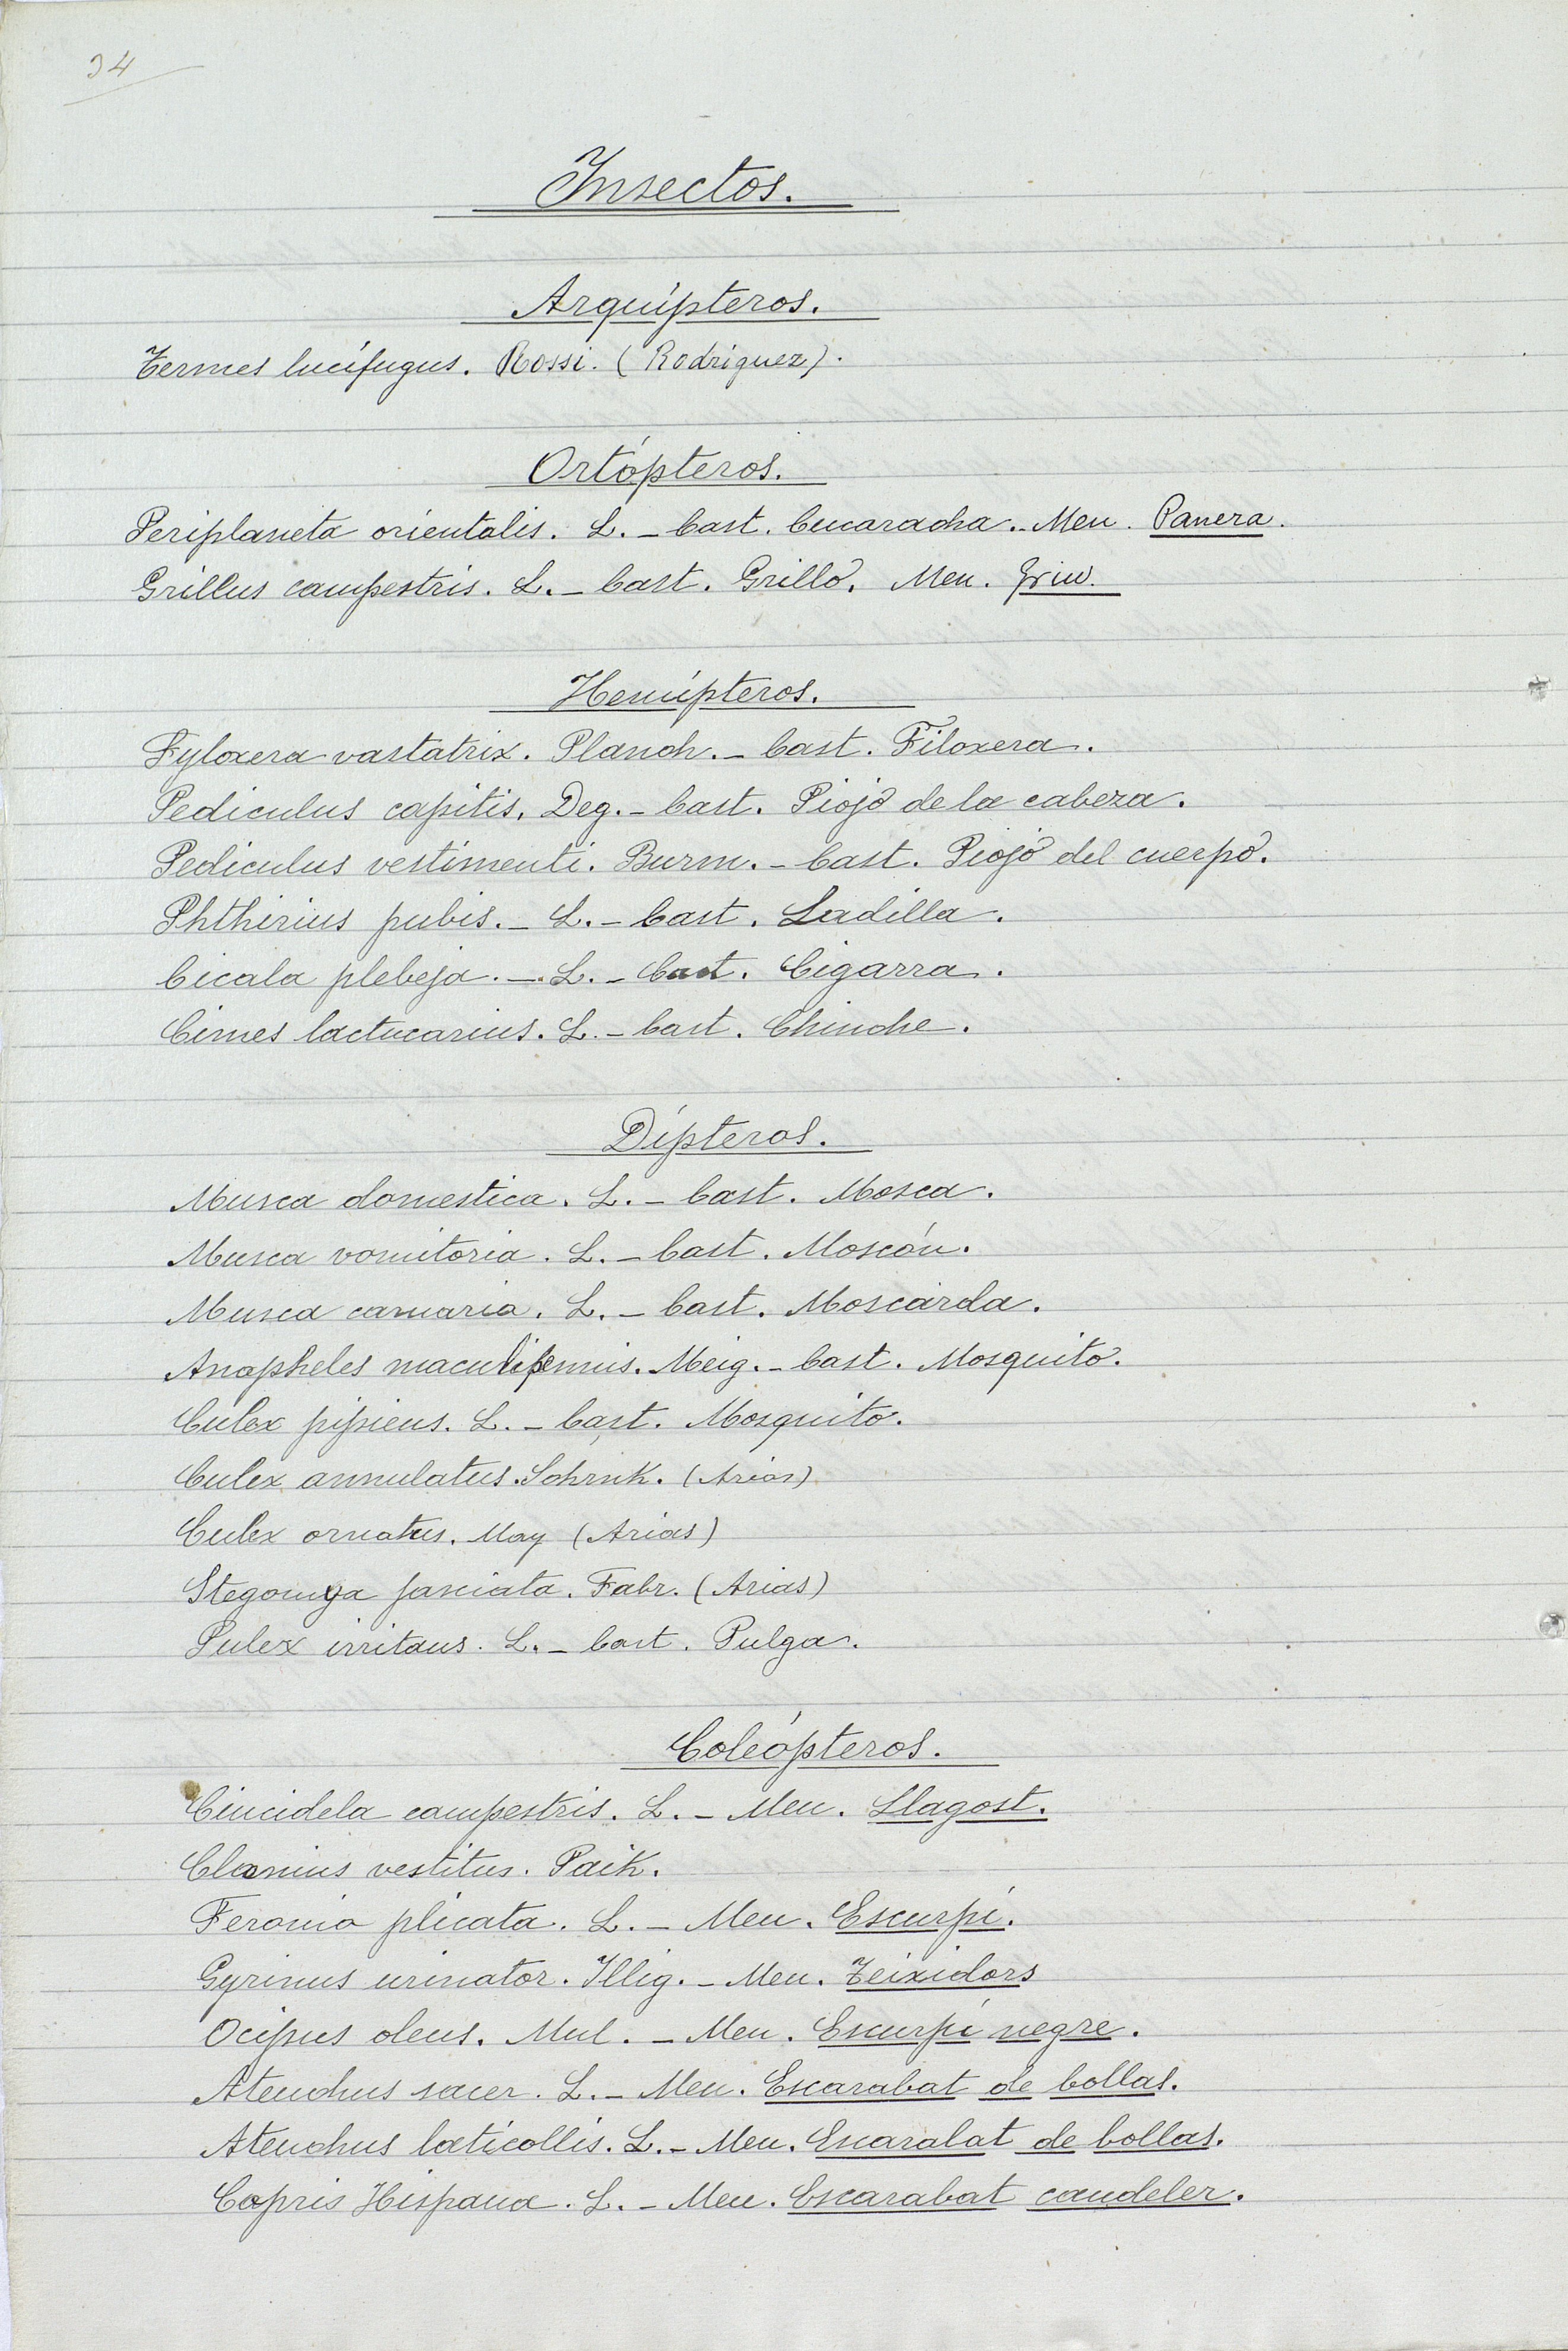 34
Insectos.
Arquípteros.
Termes lucífugus. Rossi. (Rodriguez).
Ortópteros.
Periplaneta orientalis. L. _ Cast. Cucaracha. _ Men. Panera.
Grillus campestris. L. _ Cast. Grillo. Men. Griu.
Hemípteros.
Fyloxera vastatrix. Planch. _ Cast. Filoxera.
Pediculus capitis. Deg. _ Cast. Piojo de la cabeza.
Pediculus vestimenti. Burm. _ Cast. Piojo del cuerpo.
Phthirius pubis. _ L. _ Cast. Ladilla.
Cicala plebeja. _ L. _ Cast. Cigarra.
Cimes lactucarius. L. _ Cast. Chinche.
Dípteros.
Musca domestica. L. _ Cast. Mosca.
Musca vomitoria. L. _ Cast. Moscón.
Musca carnaria. L. _ Cast. Moscarda.
Anopheles maculipennis. Meig. _ Cast. Mosquito.
Culex pipiens. L. _ Cast. Mosquito.
Culex annulatus. Schrnk. (Arias)
Culex ornatus. May (Arias)
Stegomya fasciata. Fabr. (Arias)
Pulex irritans. L. _ Cast. Pulga.
Coleópteros.
Cincidela campestris. L. _ Men. Llagost.
Clanius vestitus. Paik.
Feronia plicata. L. _ Men. Escurpí.
Gyrinus urinator. Illig. _ Men. Teixidors
Ocipus oleus. Mul. _ Men. Escurpí negre.
Ateuchus sacer. L. _ Men. Escarabat de bollas.
Ateuchus laticollis. L. _ Men. Escarabat de bollas.
Copris Hispana. L. _ Men. Escarabat candeler.